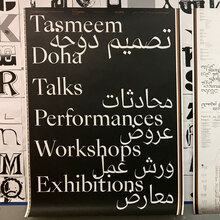 Tasmeem
تصميم دوحة
Doha
Talks
محادثات
Performances
عروض
Workshops
ورش عمل
Exhibitions
معارض